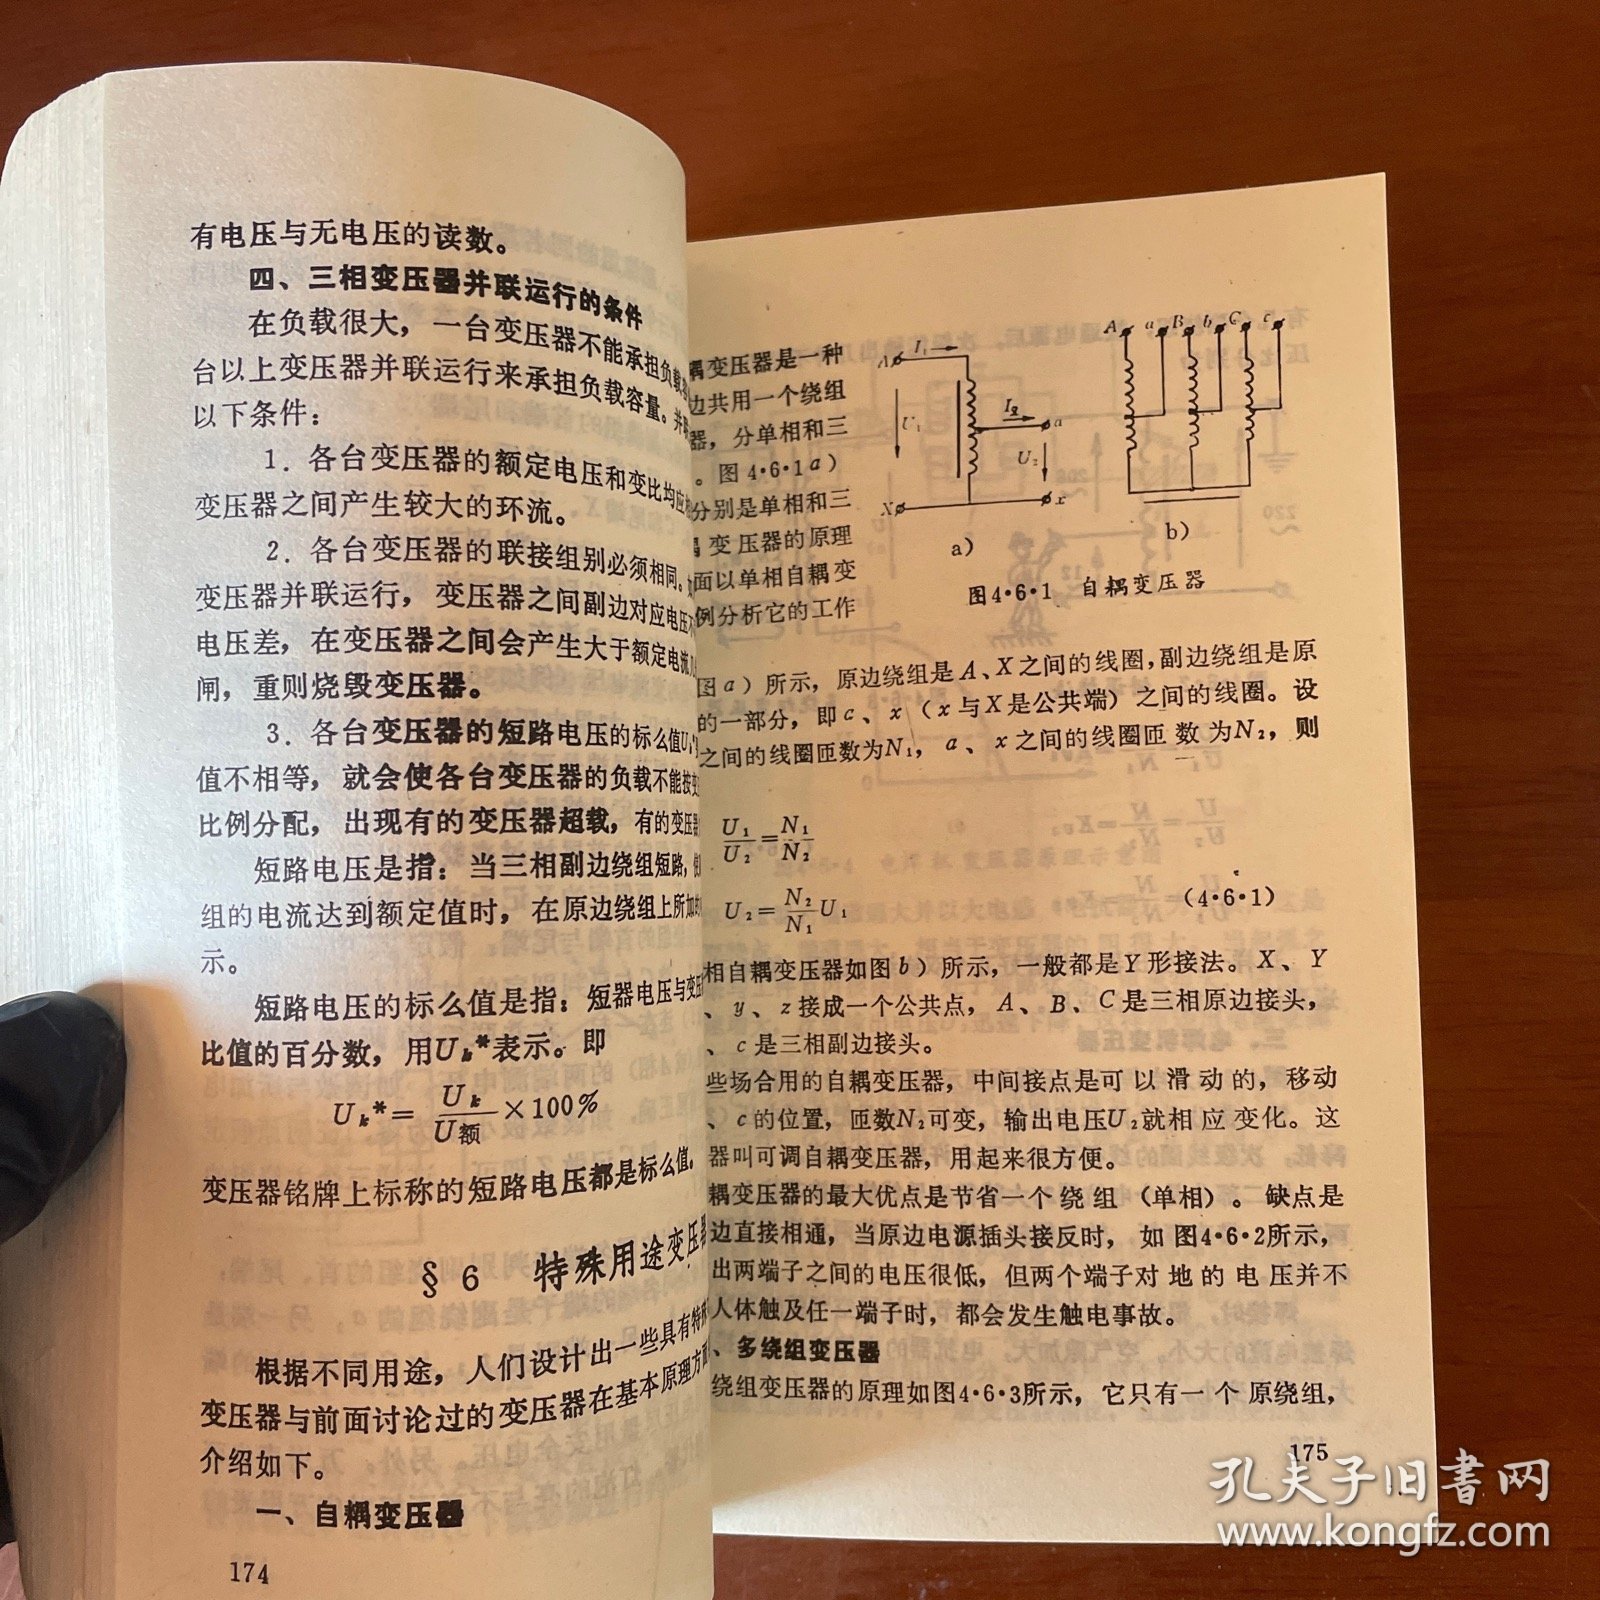 有电压与无电压的读数。
四、三相变压器并联运行的条件
在负载很大，一台变压器不能承担负载
台以上变压器并联运行来承担负载容量。并
以下条件：
1．各台变压器的额定电压和变比均应
变压器之间产生较大的环流。
2．各台变压器的联接组别必须相同。
变压器并联运行，变压器之间副边对应电压不
电压差，在变压器之间会产生大于额定电流
闸，重则烧毁变压器。
3．各台变压器的短路电压的标么值U
值不相等，就会使各台变压器的负载不能按变
比例分配，出现有的变压器超载，有的变压器
短路电压是指：当三相副边绕组短路，使
组的电流达到额定值时，在原边绕组上所加的
示。
短路电压的标么值是指：短器电压与变压
比值的百分数，用Uₖ*表示。即
Uₖ*= Uₖ/U额 ×100%
变压器铭牌上标称的短路电压都是标么值。
§6 特殊用途变压器
根据不同用途，人们设计出一些具有特殊
变压器与前面讨论过的变压器在基本原理方面
介绍如下。
一、自耦变压器
174
耦变压器是一种
边共用一个绕组
器，分单相和三
。图4·6·1a）
分别是单相和三
变压器的原理
面以单相自耦变
例分析它的工作
A I₁ U₁ I₂ a U₂ X x
a）
A a B b C c
b）
图4·6·1 自耦变压器
图a）所示，原边绕组是A、X之间的线圈，副边绕组是原
的一部分，即c、x（x与X是公共端）之间的线圈。设
之间的线圈匝数为N₁，a、x之间的线圈匝数为N₂，则
U₁/U₂=N₁/N₂
U₂=N₂/N₁ U₁ (4·6·1)
相自耦变压器如图b）所示，一般都是Y形接法。X、Y
、y、z接成一个公共点，A、B、C是三相原边接头，
、c是三相副边接头。
些场合用的自耦变压器，中间接点是可以滑动的，移动
、c的位置，匝数N₂可变，输出电压U₂就相应变化。这
器叫可调自耦变压器，用起来很方便。
耦变压器的最大优点是节省一个绕组（单相）。缺点是
边直接相通，当原边电源插头接反时，如图4·6·2所示，
出两端子之间的电压很低，但两个端子对地的电压并不
人体触及任一端子时，都会发生触电事故。
、多绕组变压器
绕组变压器的原理如图4·6·3所示，它只有一个原绕组，
175
孔夫子旧书网
www.kongfz.com